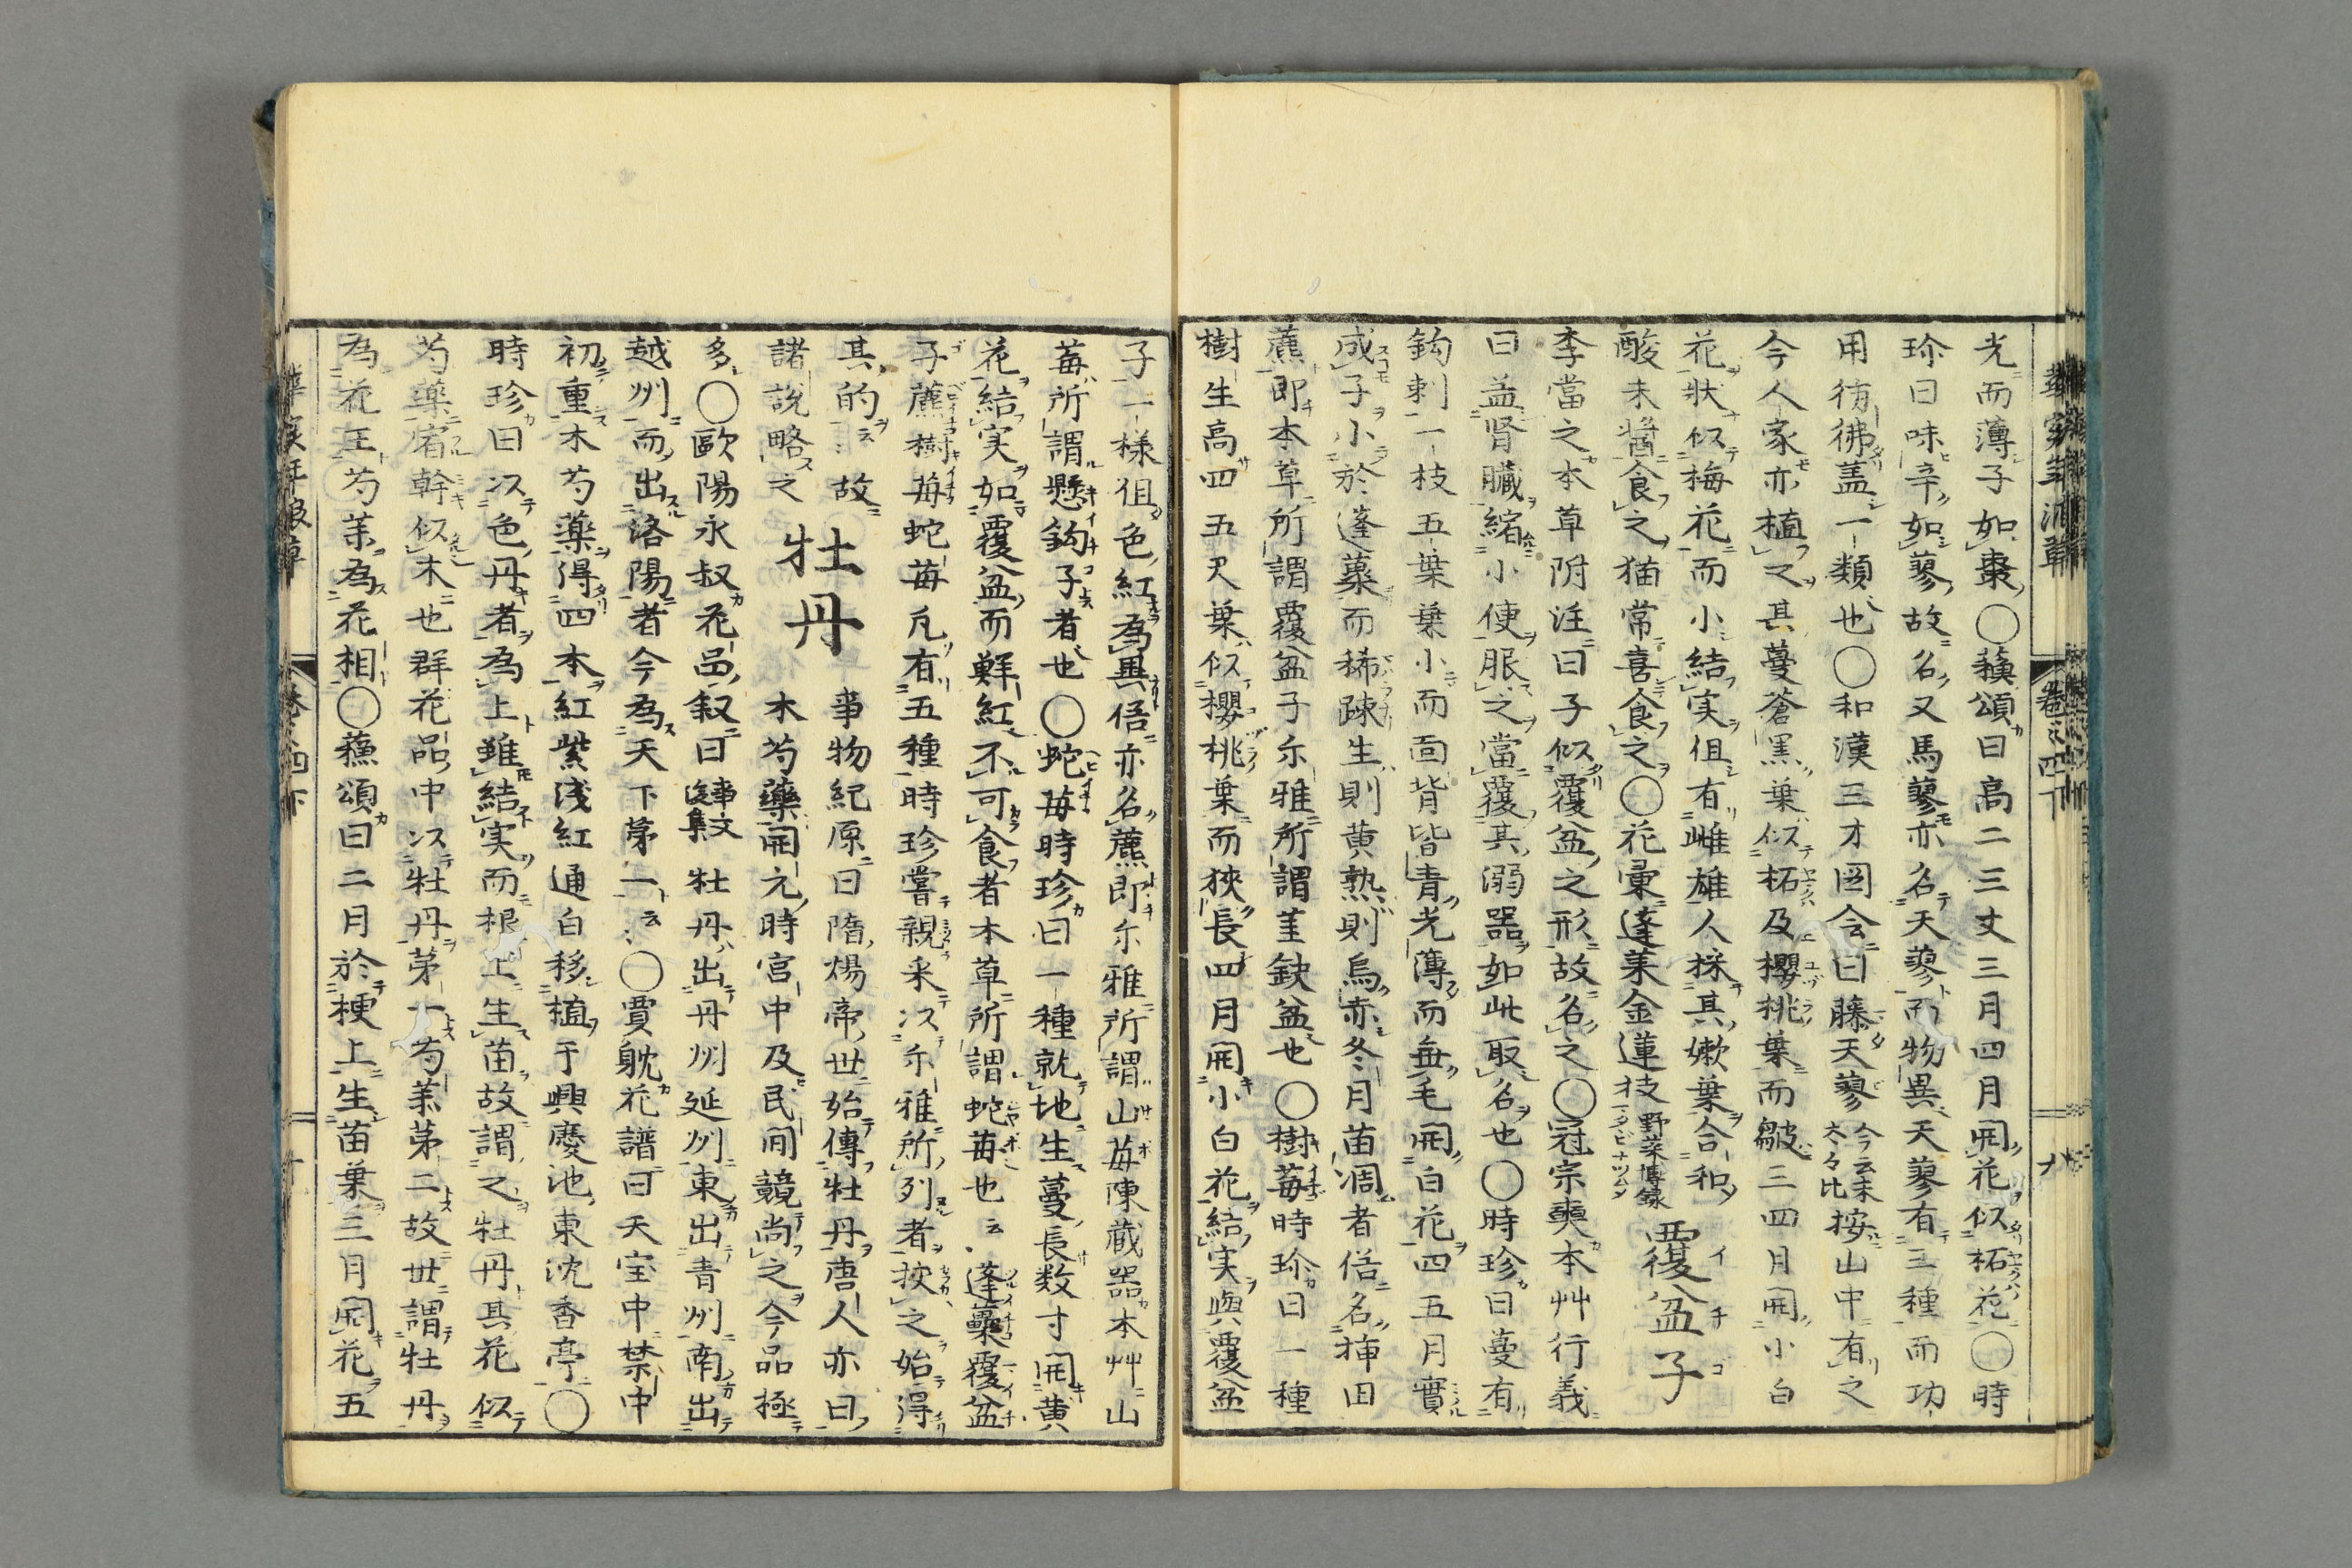 光而薄子如棗○蘓頌曰高二三丈三月四月開花似柘花○時
珍曰味辛如蓼故名又馬蓼亦名天蓼而物異天蓼有三種而功
用彷彿盖一類也○和漢三才図会曰藤天蓼今云末太々比按山中有之
今人家亦植之其蔓蒼黒葉似柘及櫻桃葉而皺三四月開小白
花狀似梅花而小結実但有雌雄人採其嫩葉合和
酸未醤食之猫常喜食之○花彙蓬莱金蓮枝野菜博録 覆盆子
李當之本草附注曰子似覆盆之形故名之○冠宗奭本艸行義
曰益肾臓縮小便服之當覆其溺器如此取名也○時珍曰蔓有
鈎刺一枝五葉葉小而面背皆青光薄而無毛開白花四五月實
成子小於蓬蘽而稀踈生則黄熟則烏赤冬月苗凋者俗名挿田
藨即本草所謂覆盆子尓雅所謂堇缺盆也○樹莓時珍曰一種
樹生高四五尺葉似櫻桃葉而狹長四月開小白花結実與覆盆
子一様但色紅為異俗亦名藨即尓雅所謂山莓陳蔵器本艸山
莓所謂懸鈎子者也○蛇莓時珍曰一種就地生蔓長数寸開黄
花結実如覆盆而鮮紅不可食者本草所謂蛇莓也云蓬虆覆盆
子藨樹莓蛇莓凡有五種時珍嘗親采以尓雅所列者挍之始得
其的云故 牡丹 事物紀原曰隋煬帝世始傳牡丹唐人亦曰
諸説略之 木芍藥開元時宮中及民间競尚之今品極
多○歐陽永叔花品叙曰事文後集牡丹出丹州延州東出青州南出
越州而出洛陽者今為天下第一云○賈躭花譜曰天宝中禁中
初重木芍藥得四本紅紫浅紅通白移植于興慶池東沈香亭○
時珍曰以色丹者為上雖結実而根上生苗故謂之牡丹其花似
芍藥宿幹似木也群花品中以牡丹第一芍薬第二故世謂牡丹
為花王芍薬為花相○蘓頌曰二月於梗上生苗葉三月開花五